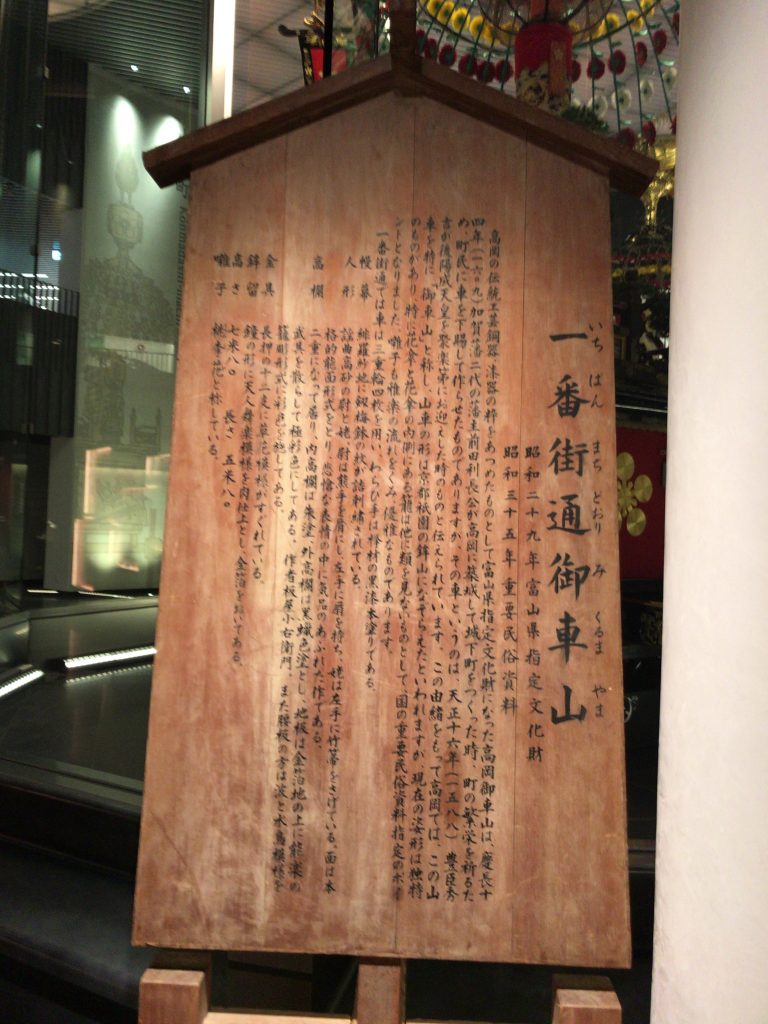 いちばん まちどおり みくるまやま
一番街通御車山
昭和二十九年富山県指定文化財
昭和三十五年重要民俗資料
高岡の伝統工芸銅器、漆器の粋をあつめたものとして富山県指定文化財になった高岡御車山は、慶長十
四年(一六〇九)加賀藩二代の藩主前田利長公が高岡に築城して城下町をつくった時、町の繁栄を祈るた
め、町民に車を下賜して作らせたものでありますが、その車というのは、天正十六年(一五八八)豊臣秀
吉が後陽成天皇を聚楽第にお迎えした時のものと伝えられています。この由緒をもって高岡では、この山
車を特に「御車山」と称し、山車の形は京都祇園の鉾山になぞらえたといわれますが、現在の姿形は独特
のものがあり、特に花傘と花傘の内側にある籠は他に類を見ないものとして、国の重要民俗資料指定のポイ
ントとなりました。囃子も雅楽の流れをくみ優雅なものであります。
一番街通では車は三重輪四枚を用い、わらび手は樫材の黒漆本塗りである。
幔幕 緋羅紗地に剣梅鉢の紋が詰刺繍されている。
人形 謡曲高砂の尉と姥、尉は熊手を肩にし左手に扇を持ち、姥は左手に竹箒をさげている。面は本
格的能面形式をとり、悲愴な表情の中に気品のあふれた作である。
高欄 二重になって居り、内高欄は朱塗、外高欄は黒蝋色塗とし、地板は金箔地の上に能楽の
武具を散らして極彩色にしてある。作者板屋小右衛門、また腰板の方は波と水鳥模様を
籠彫形式に彩色を施してある。
金具 長押の十二支に草花模様がすぐれている。
鉾留 鐘の形に天人舞楽模様を肉仕上とし、金箔を
高さ 七米八〇 長さ 五米八〇
囃子 桃李の花と称している。